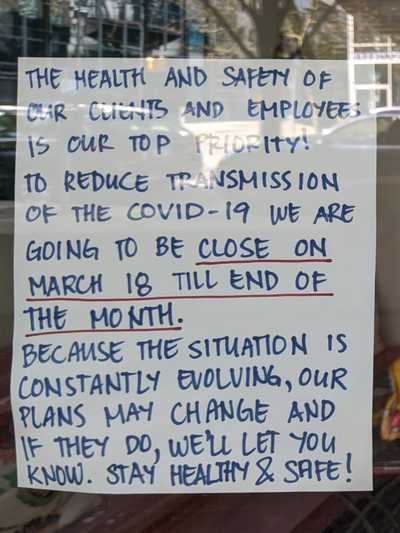 THE HEALTH AND SAFETY OF
OUR CLIENTS AND EMPLOYEES
IS OUR TOP PRIORITY!
TO REDUCE TRANSMISSION
OF THE COVID-19 WE ARE
GOING TO BE CLOSE ON
MARCH 18 TILL END OF
THE MONTH.
BECAUSE THE SITUATION IS
CONSTANTLY EVOLVING, OUR
PLANS MAY CHANGE AND
IF THEY DO, WE'LL LET YOU
KNOW. STAY HEALTHY & SAFE!